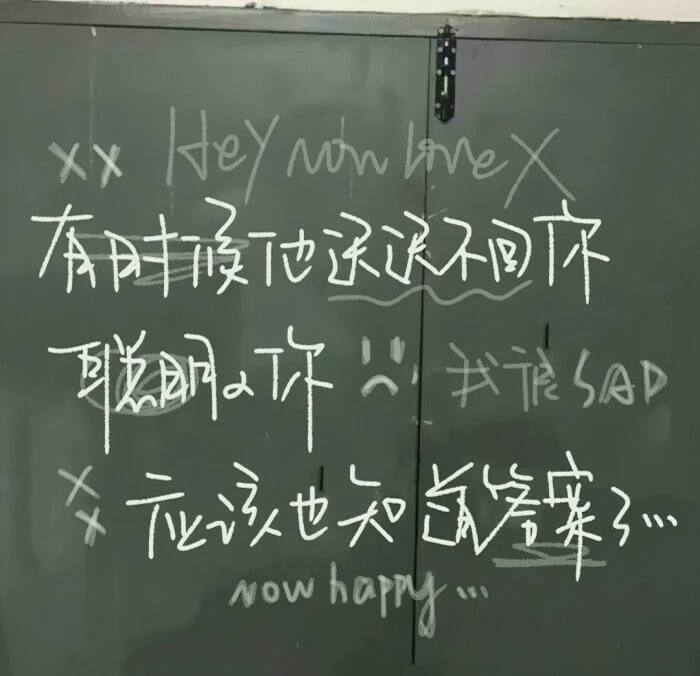 xx Hey non love X
有时候他送送不回你
聪明的你 我很SAD
xx 应该也知道答案了...
now happy...